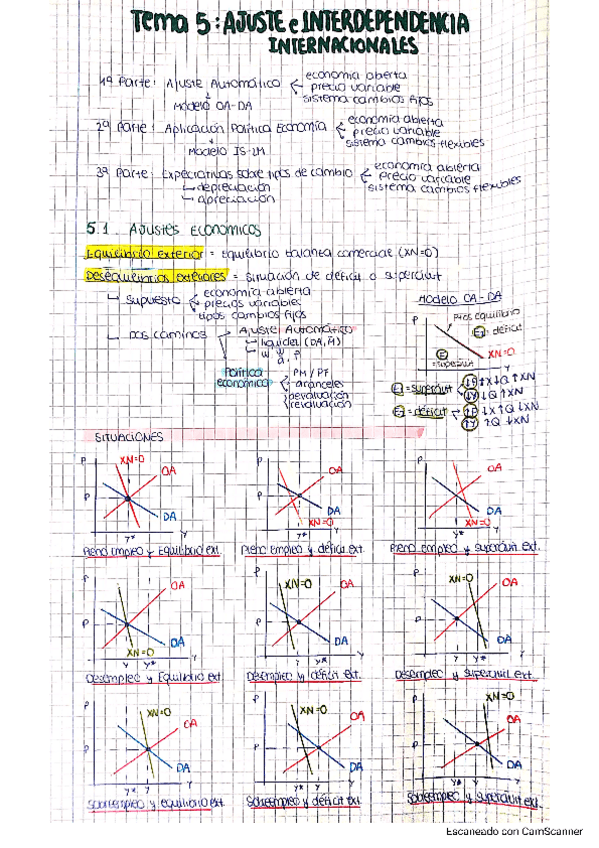 Tema 5: AJUSTE e INTERDEPENDENCIA
INTERNACIONALES
1ª Parte: Ajuste Automático
economía abierta
precio variable
sistema cambios fijos
Modelo OA-DA
2ª Parte: Aplicación Política Economía
economía abierta
precio variable
sistema cambios flexibles
Modelo IS-LM
3ª Parte: Expectativas sobre tipos de cambio
economía abierta
precio variable
sistema cambios flexibles
depreciación
apreciación
5.1. AJUSTES ECONOMICOS
Equilibrio exterior = equilibrio balanza comercial (XN=0)
Desequilibrios exteriores = situación de déficit o superávit
supuesto
economía abierta
precios variables
tipos cambios fijos
dos caminos
Ajuste Automático
liquidez (DA, M)
Política
económica
PM / PF
aranceles
devaluación
revaluación
MODELO OA-DA
P
Ptos equilibrio
E2: déficit
E1
superávit
XN=0
Y
E1 = superávit
↓P ↑X ↓Q ↑XN
↓Y ↓Q ↑XN
E2 = déficit
↑P ↓X ↑Q ↓XN
↑Y ↑Q ↓XN
SITUACIONES
P XN=0 OA P DA Y* Y
Pleno empleo y Equilibrio ext.
P OA P DA XN=0 Y* Y
Pleno empleo y déficit ext.
P OA P DA XN=0 Y* Y
Pleno empleo y superávit ext.
P OA P DA XN=0 Y Y*
Desempleo y Equilibrio ext
P XN=0 OA P DA Y Y*
Desempleo y déficit ext.
P XN=0 OA P DA Y Y*
Desempleo y superávit ext.
P XN=0 OA P DA Y* Y Y
Sobreempleo y equilibrio ext.
P XN=0 OA P DA Y* Y Y
Sobreempleo y déficit ext.
P XN=0 OA P DA Y* Y Y
Sobreempleo y superávit ext.
Escaneado con CamScanner